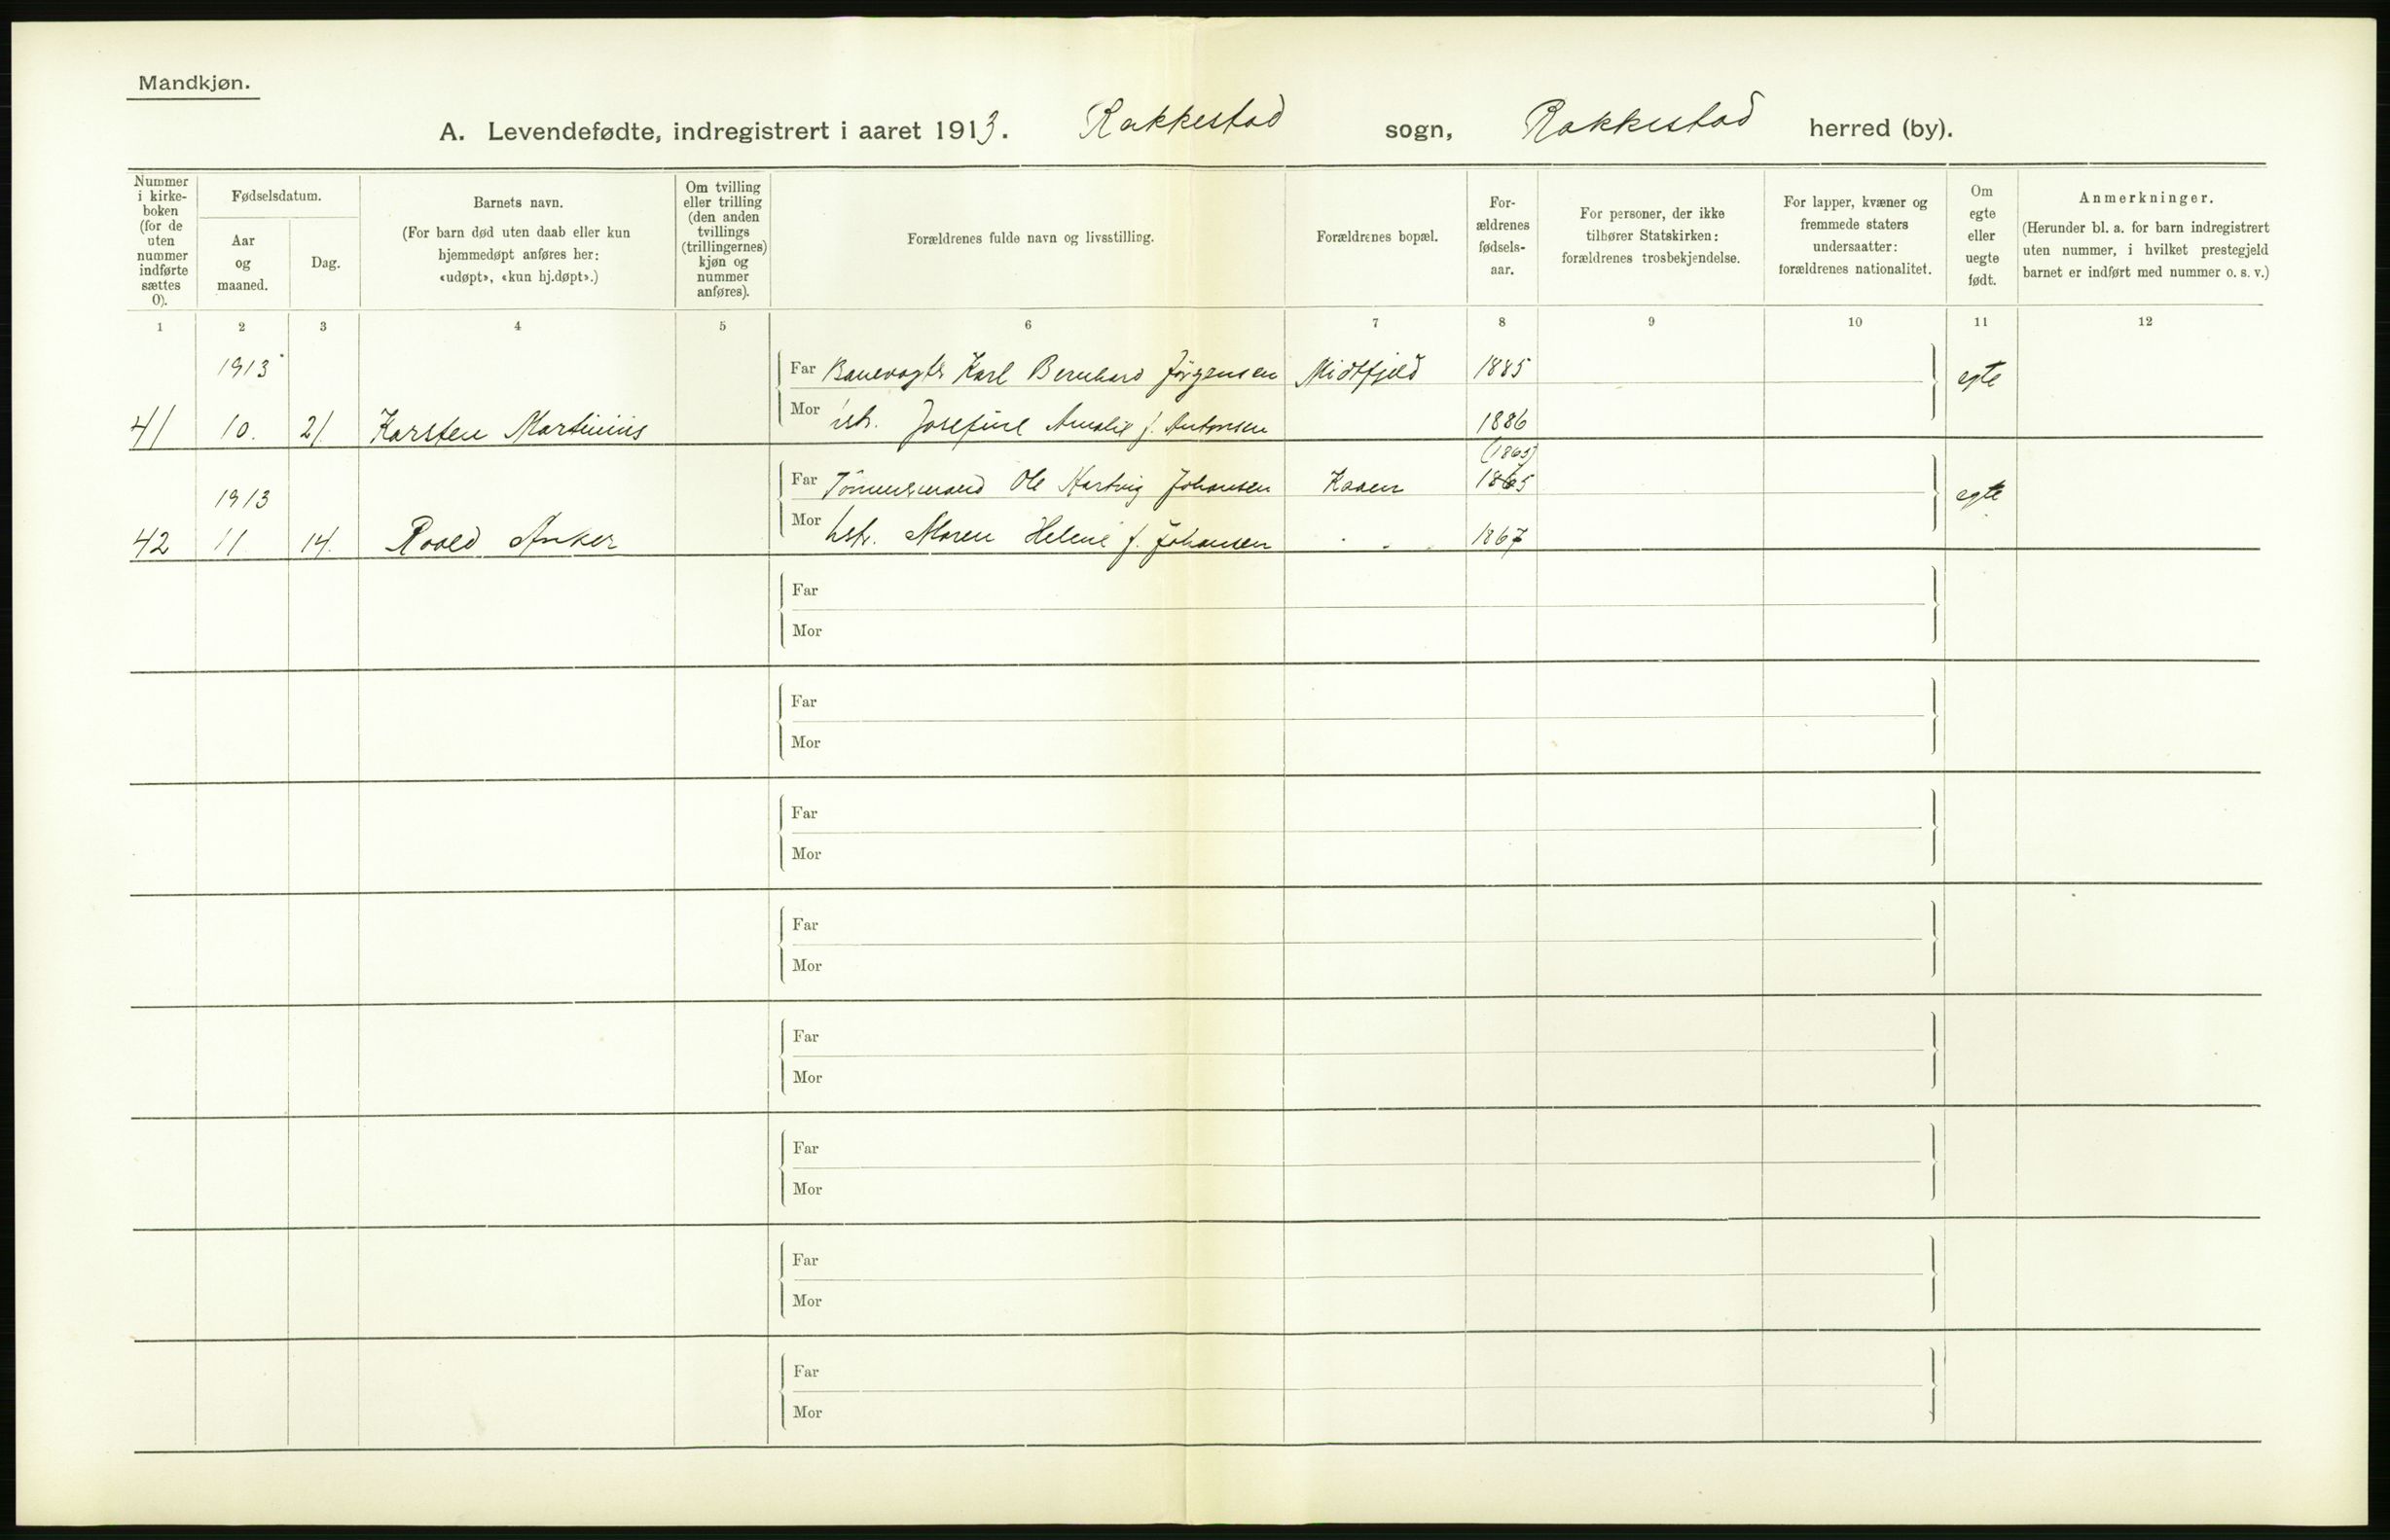 Mandkjøn.
A. Levendefødte, indregistrert i aaret 1913. Rakkestad sogn, Rakkestad herred (by).
Nummer
i kirke-
boken
(for de
uten
nummer
indførte
sættes
0).
Fødselsdatum.
Aar
og
maaned.
Dag.
Barnets navn.
(For barn død uten daab eller kun
hjemmedøpt anføres her:
«udøpt», «kun hj.døpt».)
Om tvilling
eller trilling
(den anden
tvillings
(trillingernes)
kjøn og
nummer
anføres).
Forældrenes fulde navn og livsstilling.
Forældrenes bopæl.
For-
ældrenes
fødsels-
aar.
For personer, der ikke
tilhører Statskirken:
forældrenes trosbekjendelse.
For lapper, kvæner og
fremmede staters
undersaatter:
forældrenes nationalitet.
Om
egte
eller
uegte
født.
Anmerkninger.
(Herunder bl. a. for barn indregistrert
uten nummer, i hvilket prestegjeld
barnet er indført med nummer o. s. v.)
1 2 3 4 5 6 7 8 9 10 11 12
1913 Far Banevogter Karl Bernhard Jörgensen Midtfjeld 1885 egte
41 10. 21. Karsten Martinius Mor hstr. Josefine Amalie f. Antonsen 1886
(1865)
1913 Far Tömmermand Ole Hartvig Johansen Kaaen 1865 egte
42 11 14. Roald Anker Mor hstr. Maren Helene f. Johansen - „ - 1867
Far
Mor
Far
Mor
Far
Mor
Far
Mor
Far
Mor
Far
Mor
Far
Mor
Far
Mor